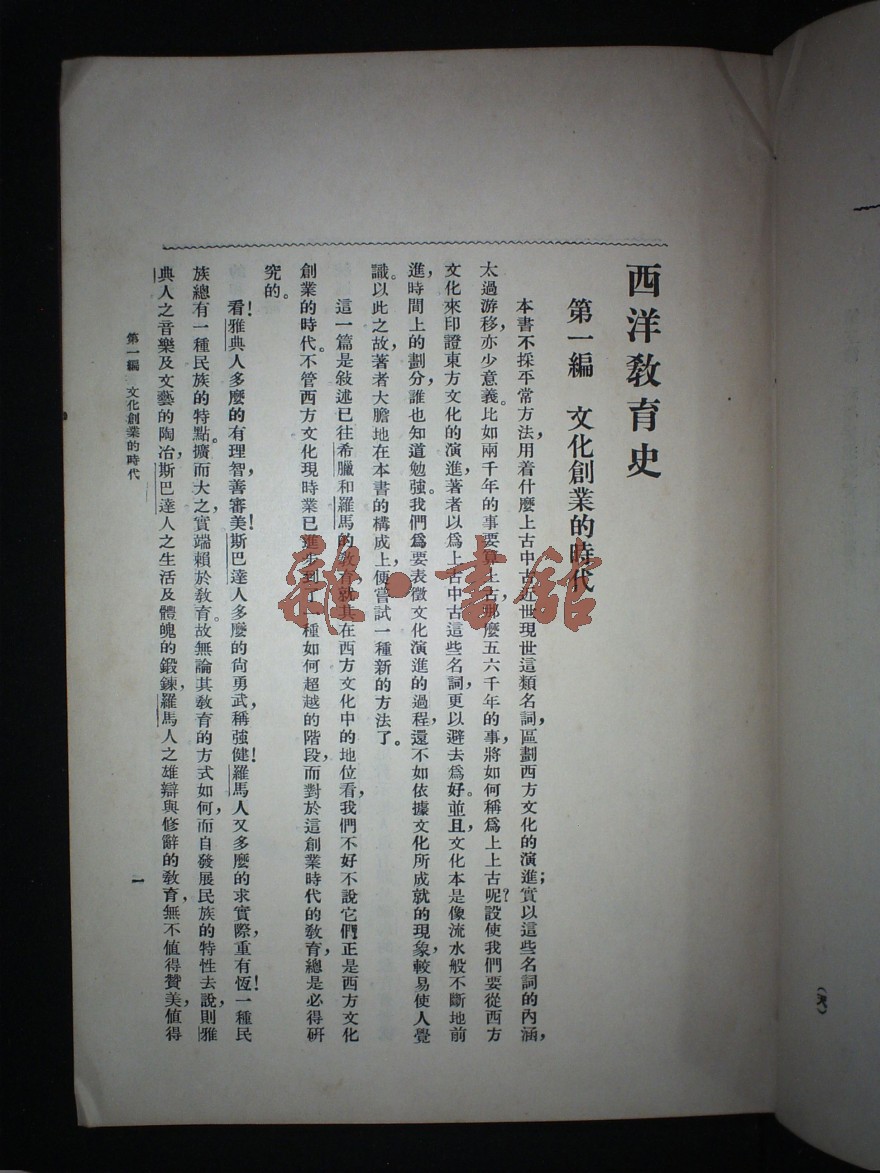 西洋教育史
第一編　文化創業的時代
本書不採平常方法，用着什麼上古中古近世現世這類名詞，區劃西方文化的演進；實以這些名詞的內涵，
太過游移，亦少意義。比如兩千年的事要算上古，那麼五六千年的事，將如何稱爲上上古呢？設使我們要從西方
文化來印證東方文化的演進，著者以爲上古中古這些名詞，更以避去爲好。並且，文化本是像流水般不斷地前
進，時間上的劃分，誰也知道勉強。我們爲要表徵文化演進的過程，還不如依據文化所成就的現象，較易使人覺
識。以此之故，著者大膽地在本書的構成上，便嘗試一種新的方法了。
這一篇是敍述已往希臘和羅馬的教育，就其在西方文化中的地位看，我們不好不說它們正是西方文化
創業的時代。不管西方文化現時業已進步到了一種如何超越的階段，而對於這創業時代的教育，總是必得研
究的。
看！雅典人多麼的有理智，善審美！斯巴達人多麼的尙勇武，稱強健！羅馬人又多麼的求實際，重有恆！一種民
族總有一種民族的特點。擴而大之，實端賴於教育。故無論其教育的方式如何，而自發展民族的特性去說，則雅
典人之音樂及文藝的陶冶，斯巴達人之生活及體魄的鍛鍊，羅馬人之雄辯與修辭的教育，無不值得贊美，值得
第一編　文化創業的時代
一
雜·書館